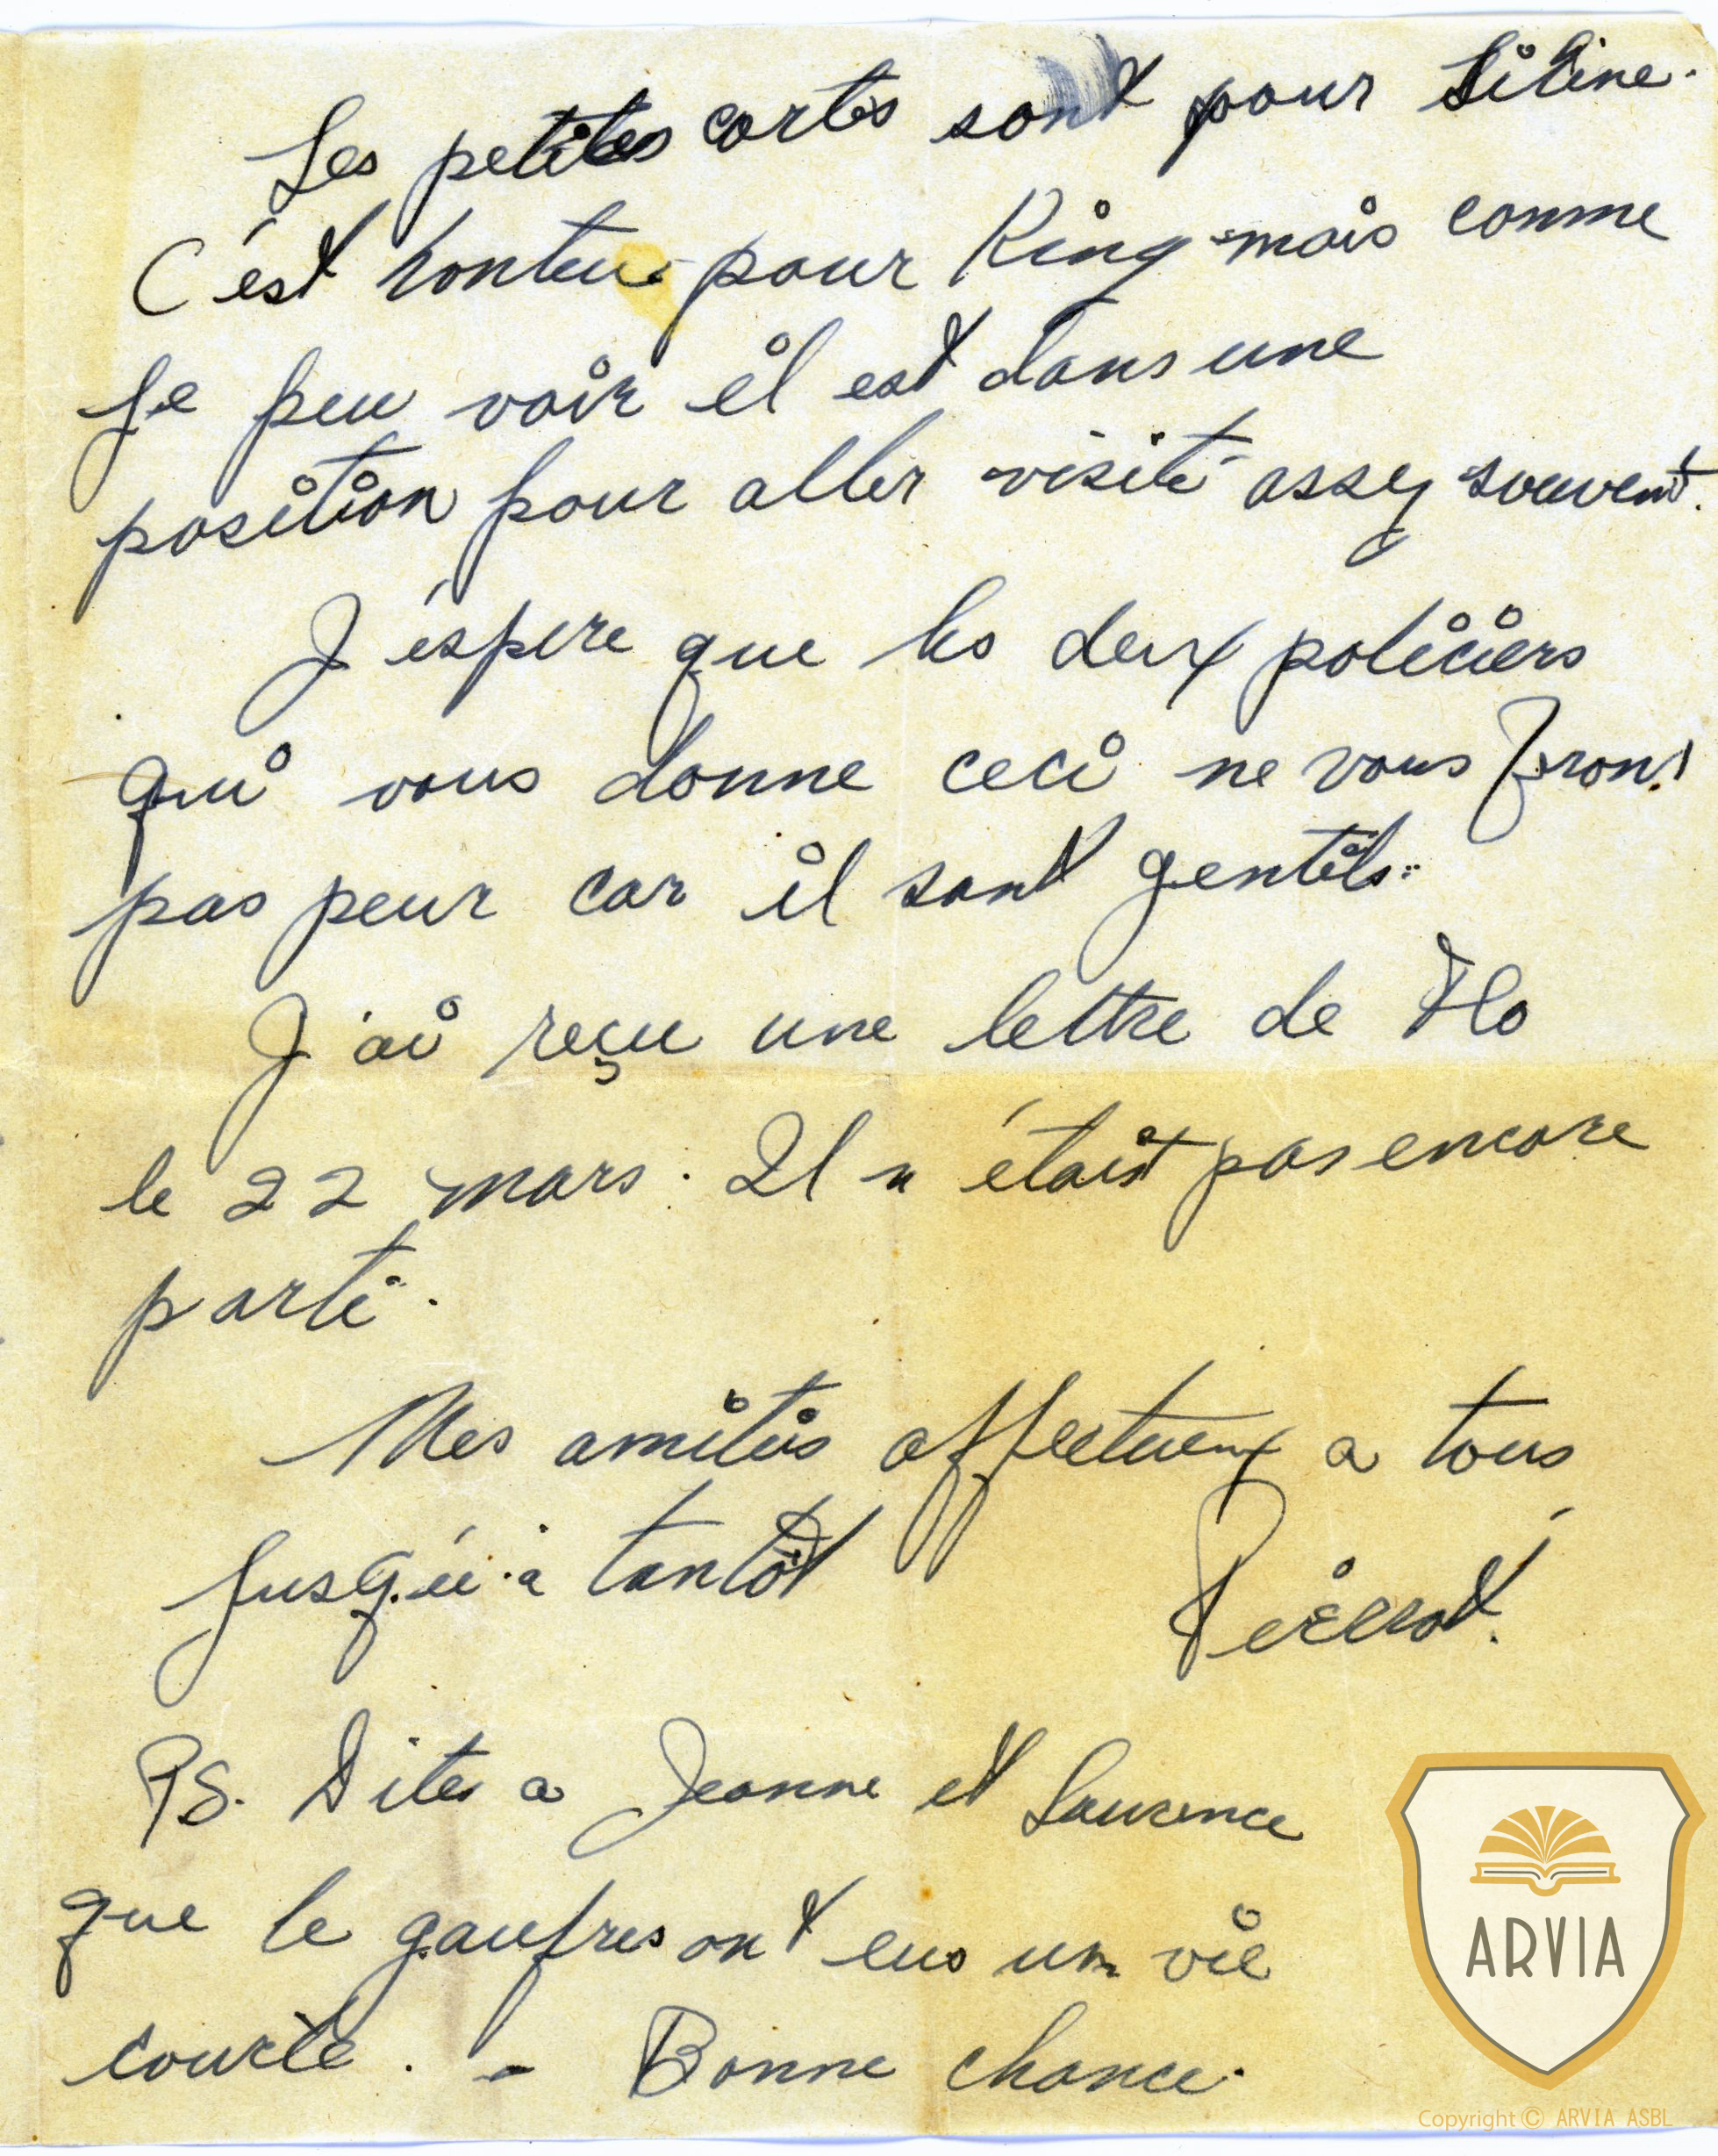 Les petites cartes sont pour Liline.
C'est honteux pour King mais comme
je peu voir il est dans une
position pour aller visité assez souvent.
J'éspere que les deux policiers
qui vous donne ceci ne vous feront
pas peur car il sont gentils.
J'ai reçu une lettre de Flo
le 22 mars. Il n'était pas encore
parti.
Mes amitiés affectueux a tous
Jusqu'à tantôt
Pierrot.
PS. Dites a Jeanne et Laurence
que le gaufres ont eus un vie
courte. - Bonne chance.
ARVIA
Copyright © ARVIA ASBL